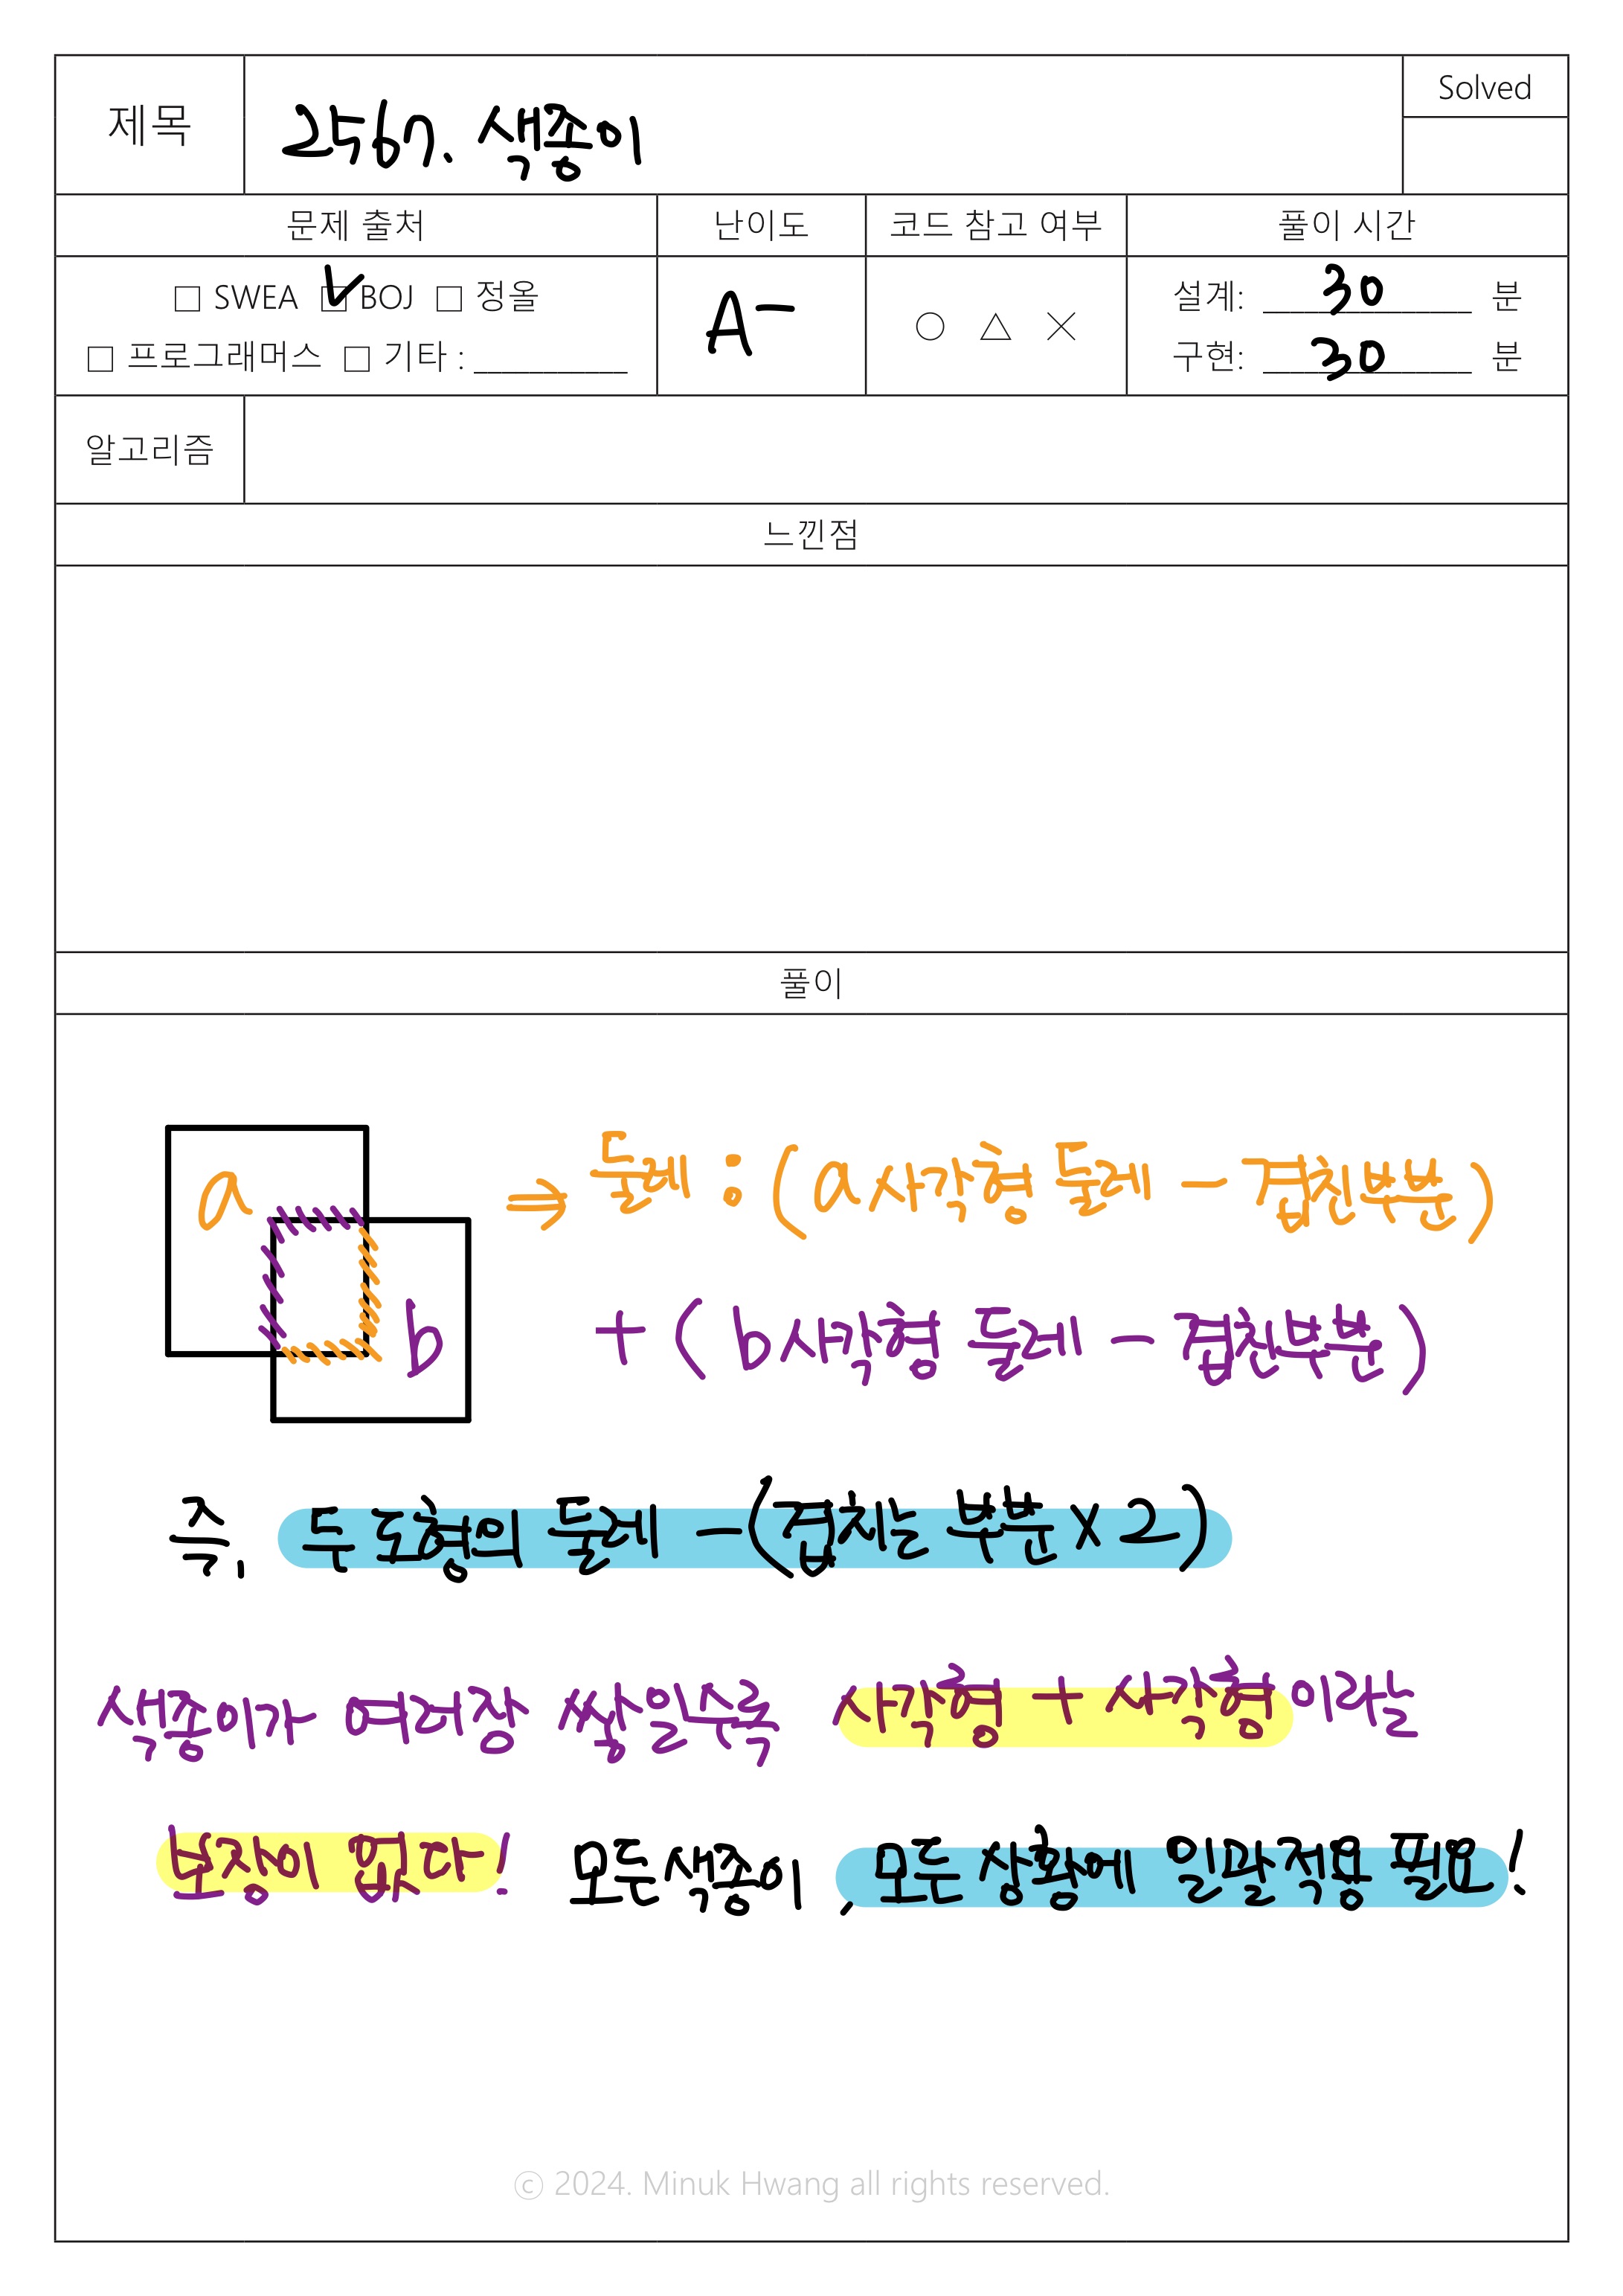 제목
2567. 색종이
Solved
문제 출처
난이도
코드 참고 여부
풀이 시간
□ SWEA ☑ BOJ □ 정올
□ 프로그래머스 □ 기타 : __________
A-
○ △ ×
설계: 30 분
구현: 30 분
알고리즘
느낀점
풀이
a
b
⇒ 둘레 : (a사각형 둘레 - 겹친부분)
+ (b사각형 둘레 - 겹친부분)
즉, 두 도형의 둘레 - (겹치는 부분 X 2)
색종이가 여러장 쌓일수록 사각형 + 사각형이란
보장이 없다! 모든색종이, 모든 상황에 일괄적용 필요!
© 2024. Minuk Hwang all rights reserved.